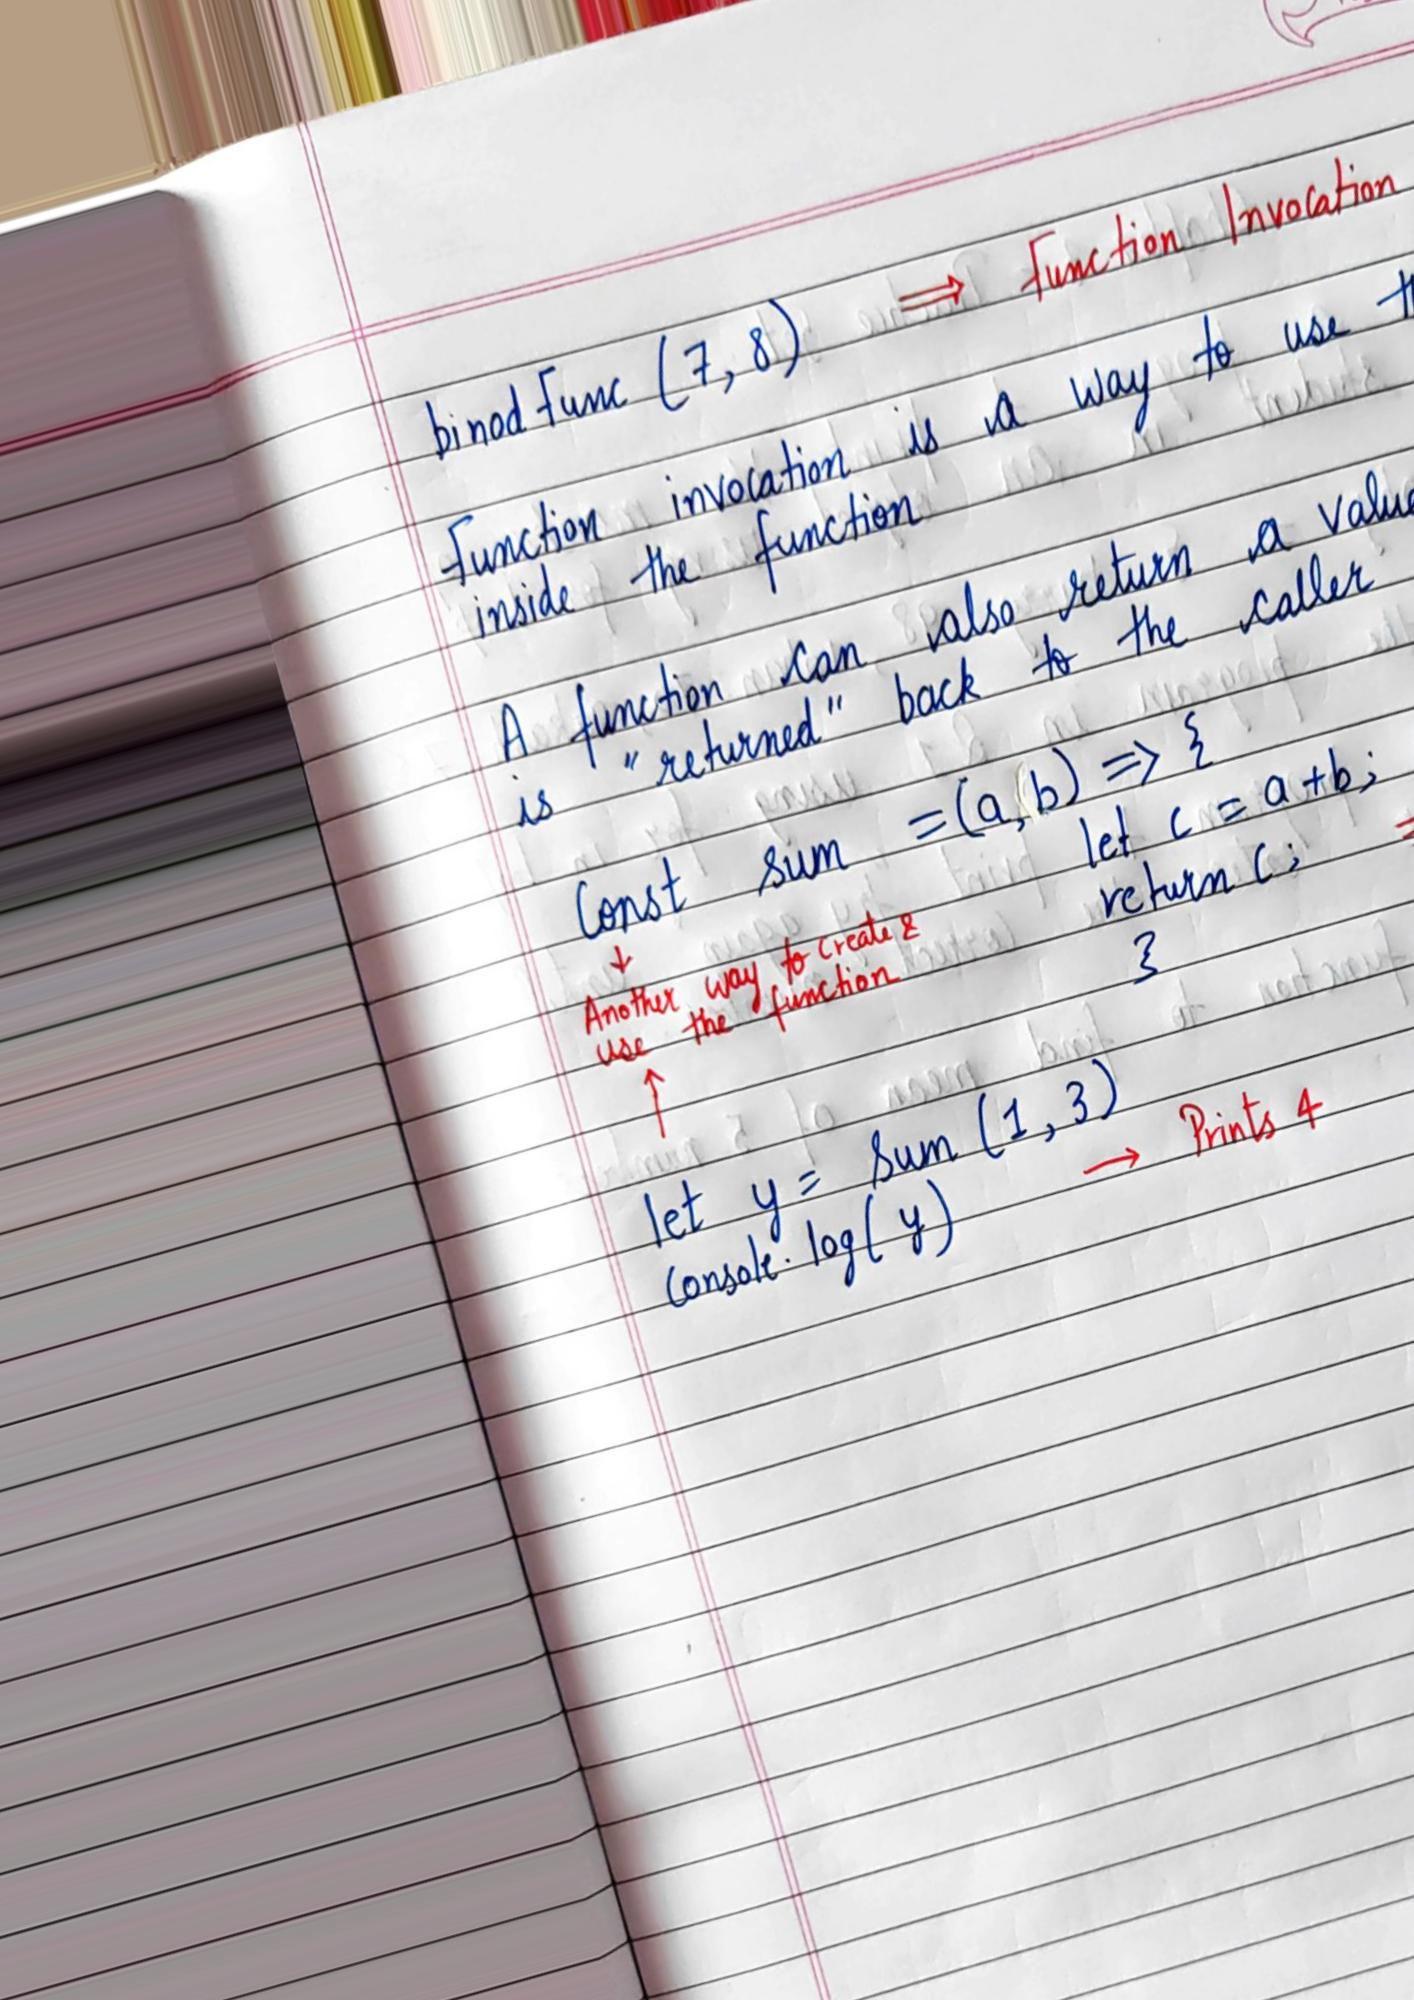 binod func (7, 8) ⟹ Function Invocation
Function invocation is a way to use
inside the function
A function can also return a value
is "returned" back to the caller
Const sum = (a, b) => {
let c = a + b;
return c;
}
↓
Another way to create &
use the function
↑
let y = sum (1, 3)
console.log( y) → Prints 4